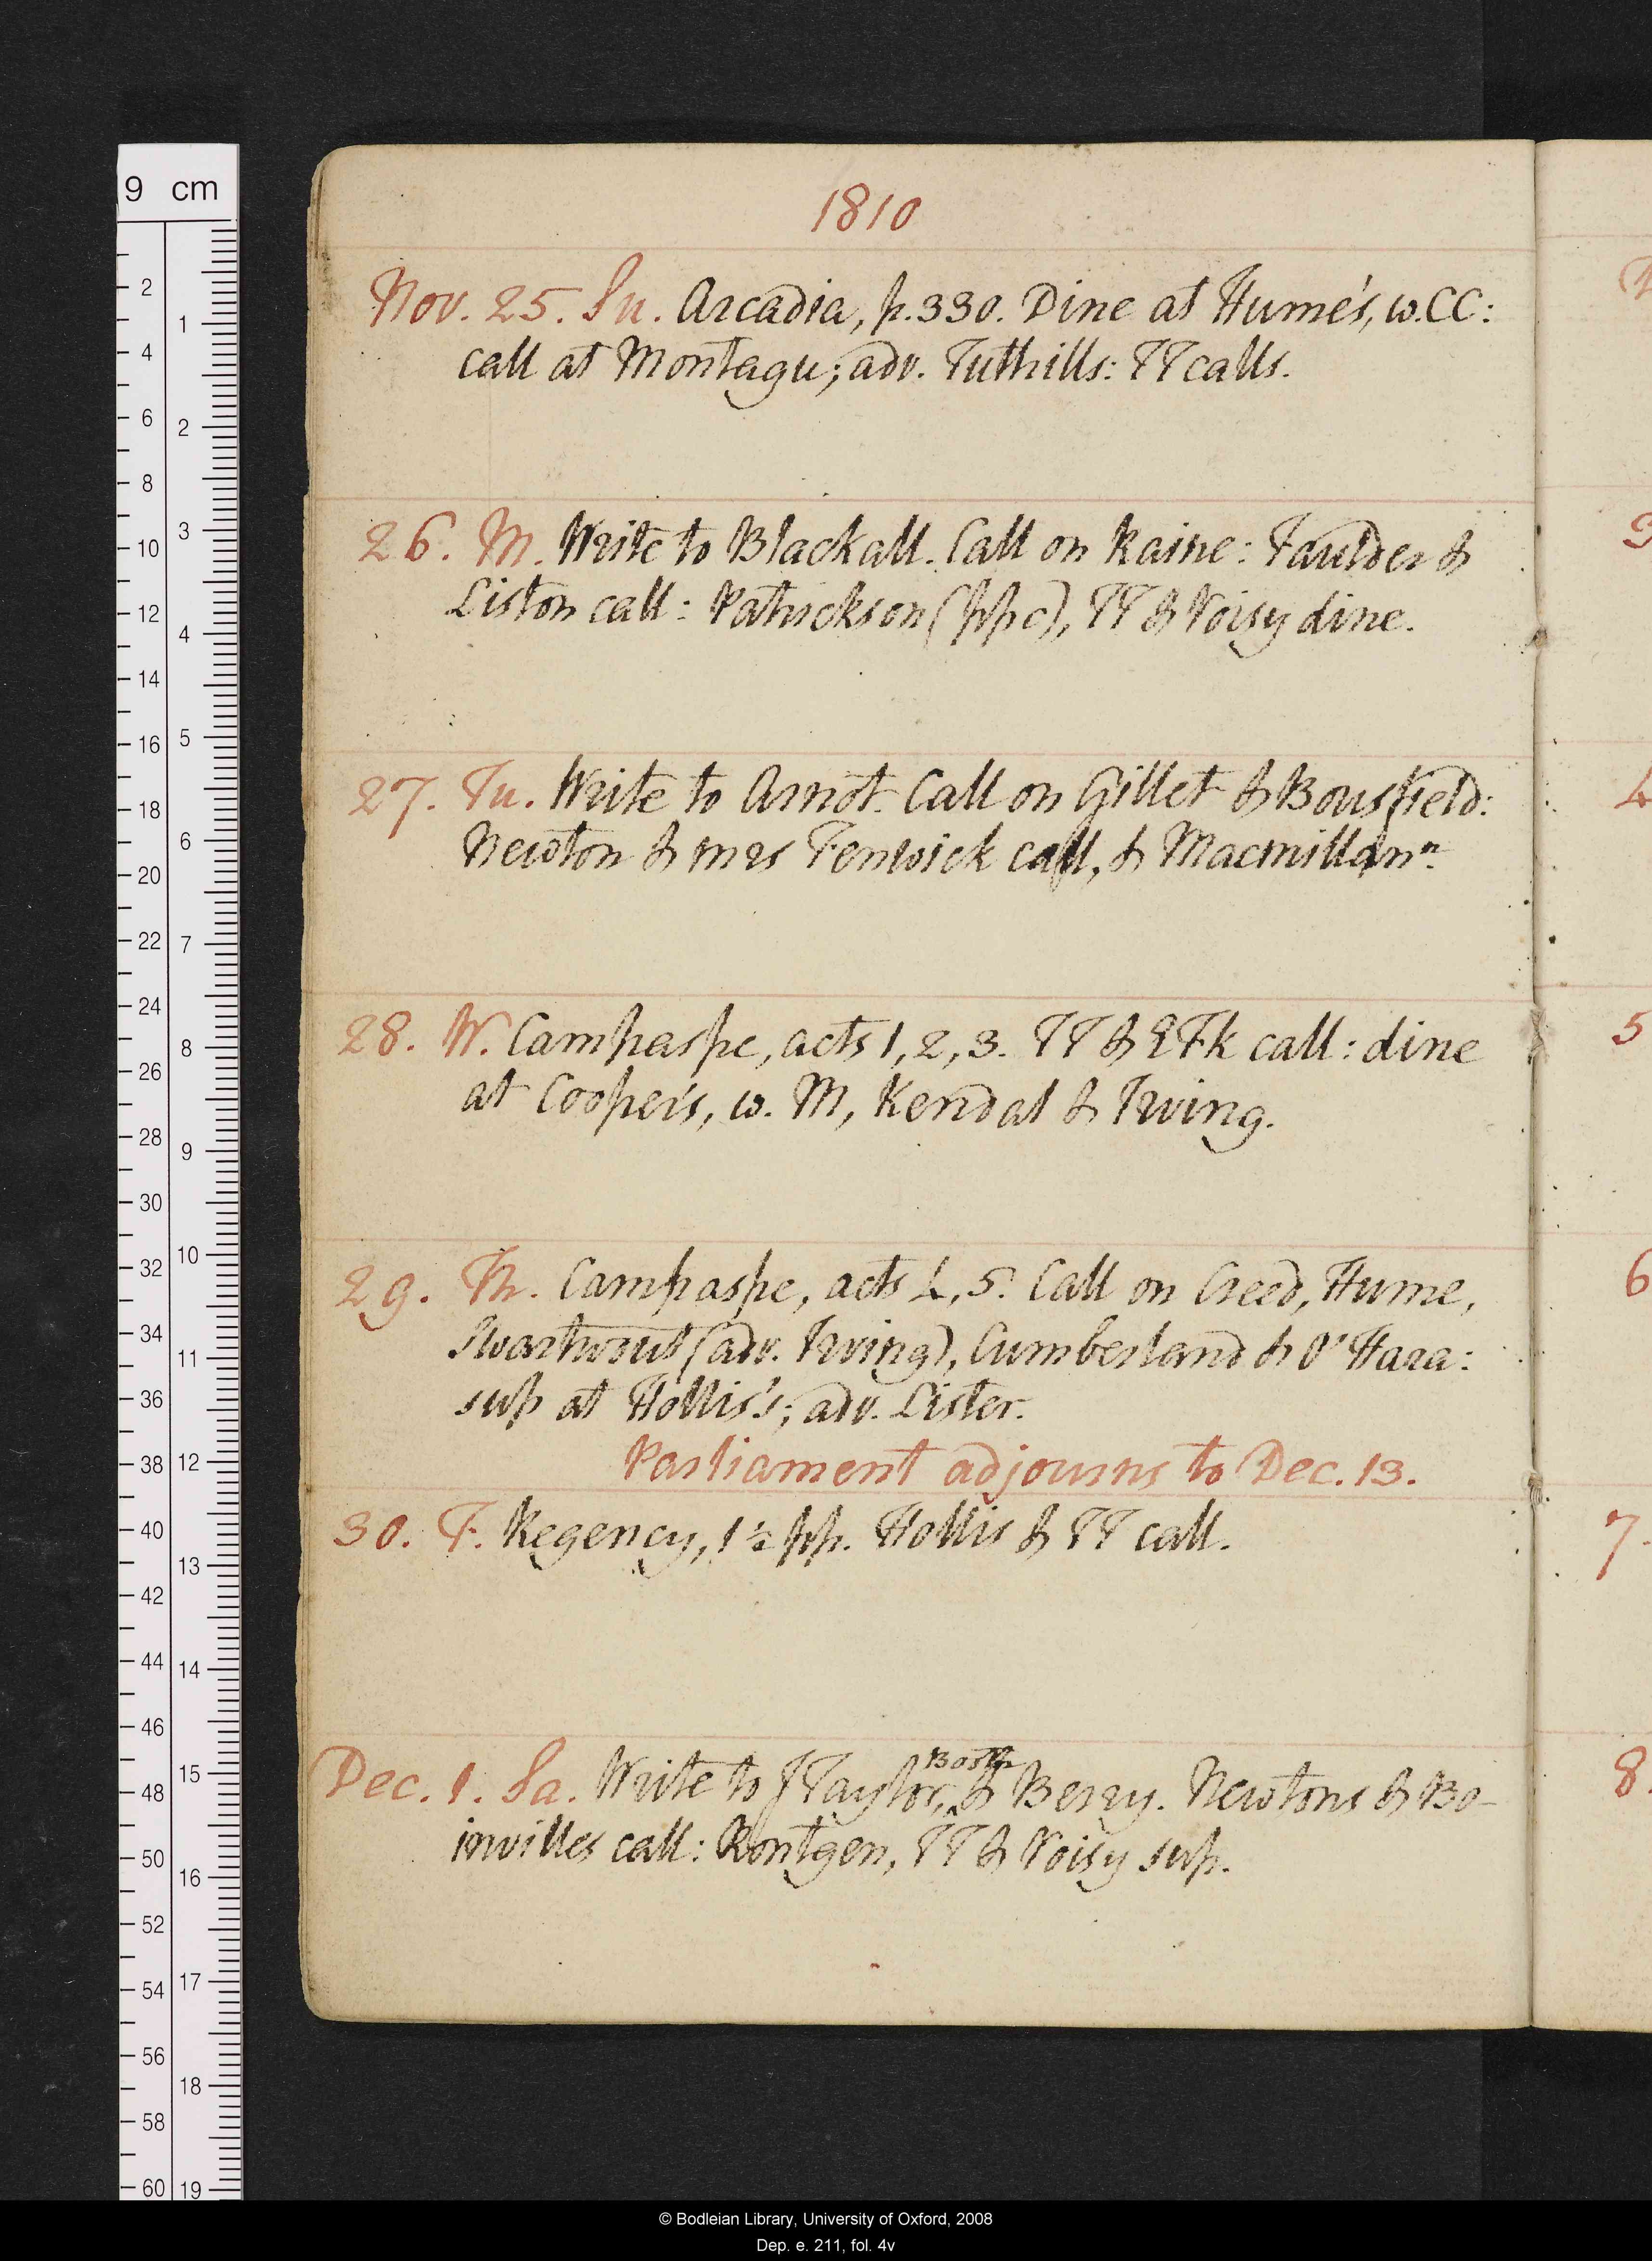 1810
Nov. 25. Su. Arcadia, p. 330. Dine at Hume's, w. CC:
call at Montagu; adv. Tuthills: TT calls.
26. M. Write to Blackall. Call on Raine: Faulder &
Liston call: Patrickson (ppc), TT & Voisy dine.
27. Tu. Write to Arnot. Call on Gillet & Bousfield:
Newton & Mrs Fenwick call, & Macmillan n.
28. W. Campaspe, acts 1, 2, 3. TT & EFk call: dine
at Cooper's, w. M, Kendal & Irving.
29. Th. Campaspe, acts 4, 5. Call on Creed, Hume,
Swartwout (adv. Irving), Cumberland & O'Hara:
sup at Hollis's; adv. Lister.
Parliament adjourns to Dec. 13.
30. F. Regency, 1½ pp. Hollis & TT call.
Dec. 1. Sa. Write to J Taylor, Booth & Berry. Newtons & Bo-
invilles call: Rontgen, TT & Voisy sup.
3
4
5
6
7.
8.
9 cm
2 4 6 8 10 12 14 16 18 20 22 24 26 28 30 32 34 36 38 40 42 44 46 48 50 52 54 56 58 60
1 2 3 4 5 6 7 8 9 10 11 12 13 14 15 16 17 18 19
© Bodleian Library, University of Oxford, 2008
Dep. e. 211, fol. 4v